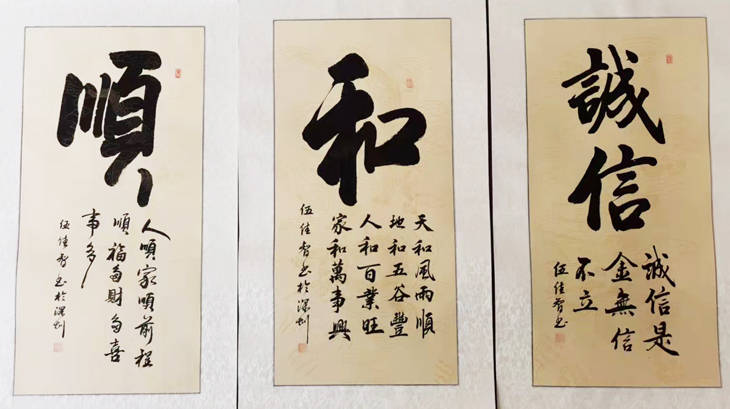 順
人順家順前程
順福多財多喜
事多
伍佳智书於深圳
和
天和風雨順
地和五谷豐
人和百業旺
家和萬事興
伍佳智书於深圳
誠信
誠信是
金無信
不立
伍佳智书